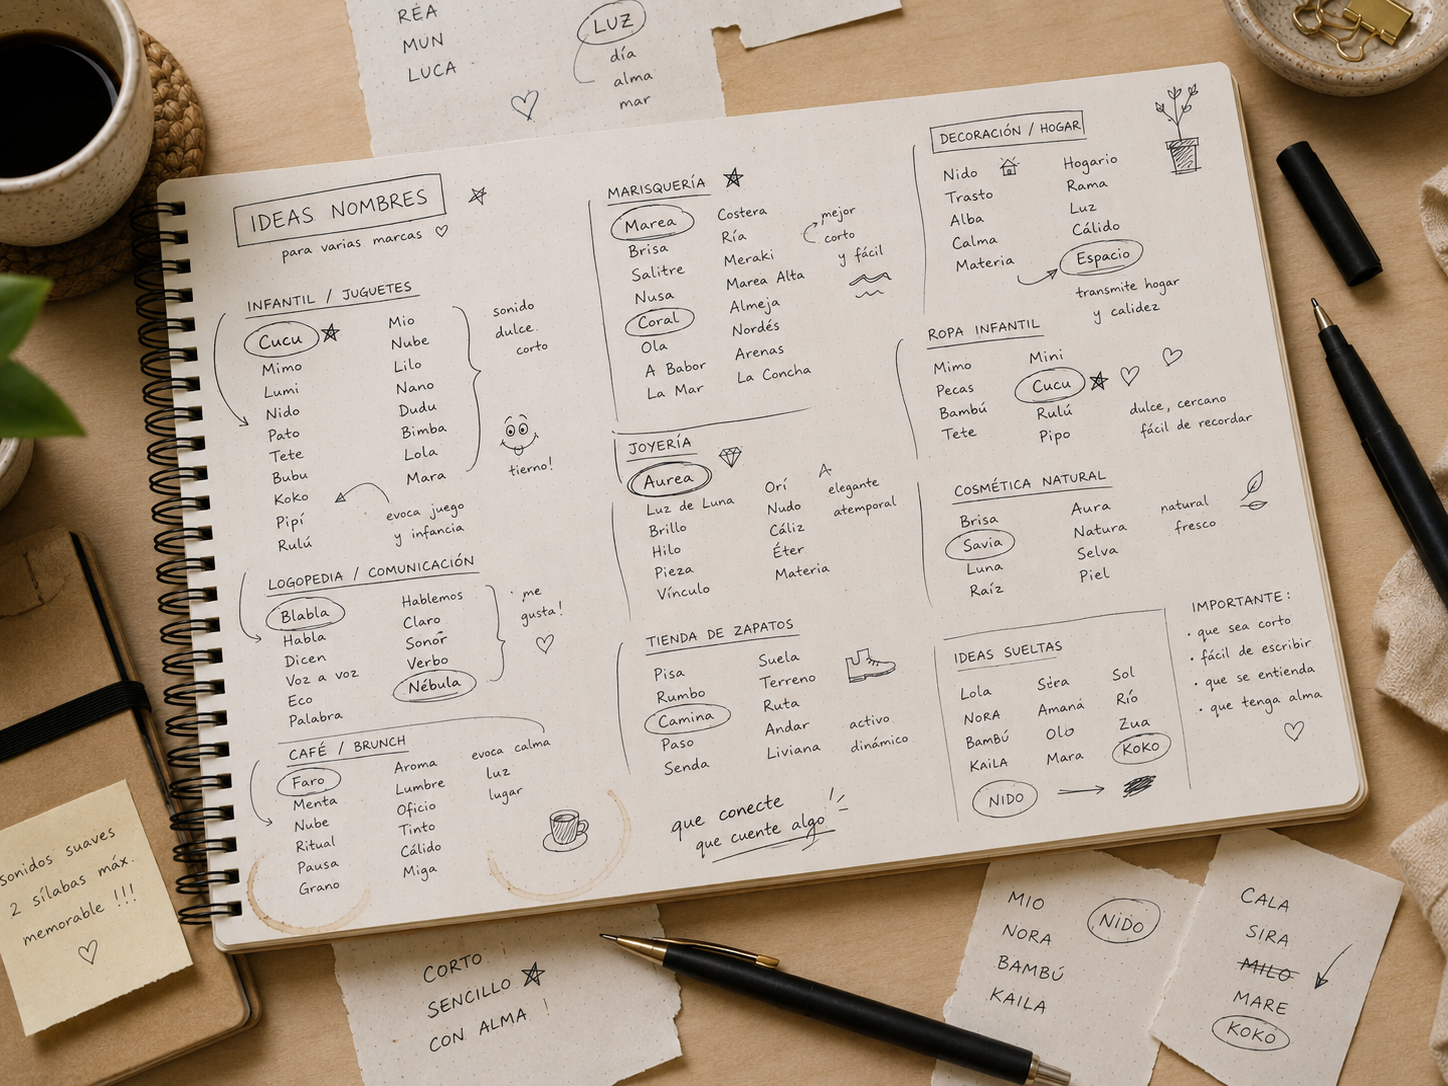 RÉA
MUN
LUCA
LUZ
día
alma
mar
IDEAS NOMBRES
para varias marcas
INFANTIL / JUGUETES
Cucu
Mimo
Lumi
Nido
Pato
Tete
Bubu
Koko
Pipí
Rulú
Mio
Nube
Lilo
Nano
Dudu
Bimba
Lola
Mara
sonido
dulce.
corto
tierno!
evoca juego
y infancia
LOGOPEDIA / COMUNICACIÓN
Blabla
Habla
Dicen
Voz a voz
Eco
Palabra
Hablemos
Claro
Sonor
Verbo
Nébula
· me
gusta!
CAFÉ / BRUNCH
Faro
Menta
Nube
Ritual
Pausa
Grano
Aroma
Lumbre
Oficio
Tinto
Cálido
Miga
evoca calma
luz
lugar
MARISQUERÍA
Marea
Brisa
Salitre
Nusa
Coral
Ola
A Babor
La Mar
Costera
Ría
Meraki
Marea Alta
Almeja
Nordés
Arenas
La Concha
mejor
corto
y fácil
JOYERÍA
Aurea
Luz de Luna
Brillo
Hilo
Pieza
Vínculo
Orí
Nudo
Cáliz
Éter
Materia
elegante
atemporal
TIENDA DE ZAPATOS
Pisa
Rumbo
Camina
Paso
Senda
Suela
Terreno
Ruta
Andar
Liviana
activo
dinámico
que conecte
que cuente algo!
DECORACIÓN / HOGAR
Nido
Trasto
Alba
Calma
Materia
Hogario
Rama
Luz
Cálido
Espacio
transmite hogar
y calidez
ROPA INFANTIL
Mimo
Pecas
Bambú
Tete
Mini
Cucu
Rulú
Pipo
dulce, cercano
fácil de recordar
COSMÉTICA NATURAL
Brisa
Savia
Luna
Raíz
Aura
Natura
Selva
Piel
natural
fresco
IDEAS SUELTAS
Lola
NORA
BAMBÚ
KAILA
Amaná
Mara
Sol
Río
Zua
KOKO
NIDO
IMPORTANTE:
· que sea corto
· fácil de escribir
· que se entienda
· que tenga alma
sonidos suaves
2 sílabas máx.
memorable !!!
CORTO !
SENCILLO
CON ALMA !
MIO
NORA
BAMBÚ
KAILA
NIDO
CALA
SIRA
MILO
MARE
KOKO